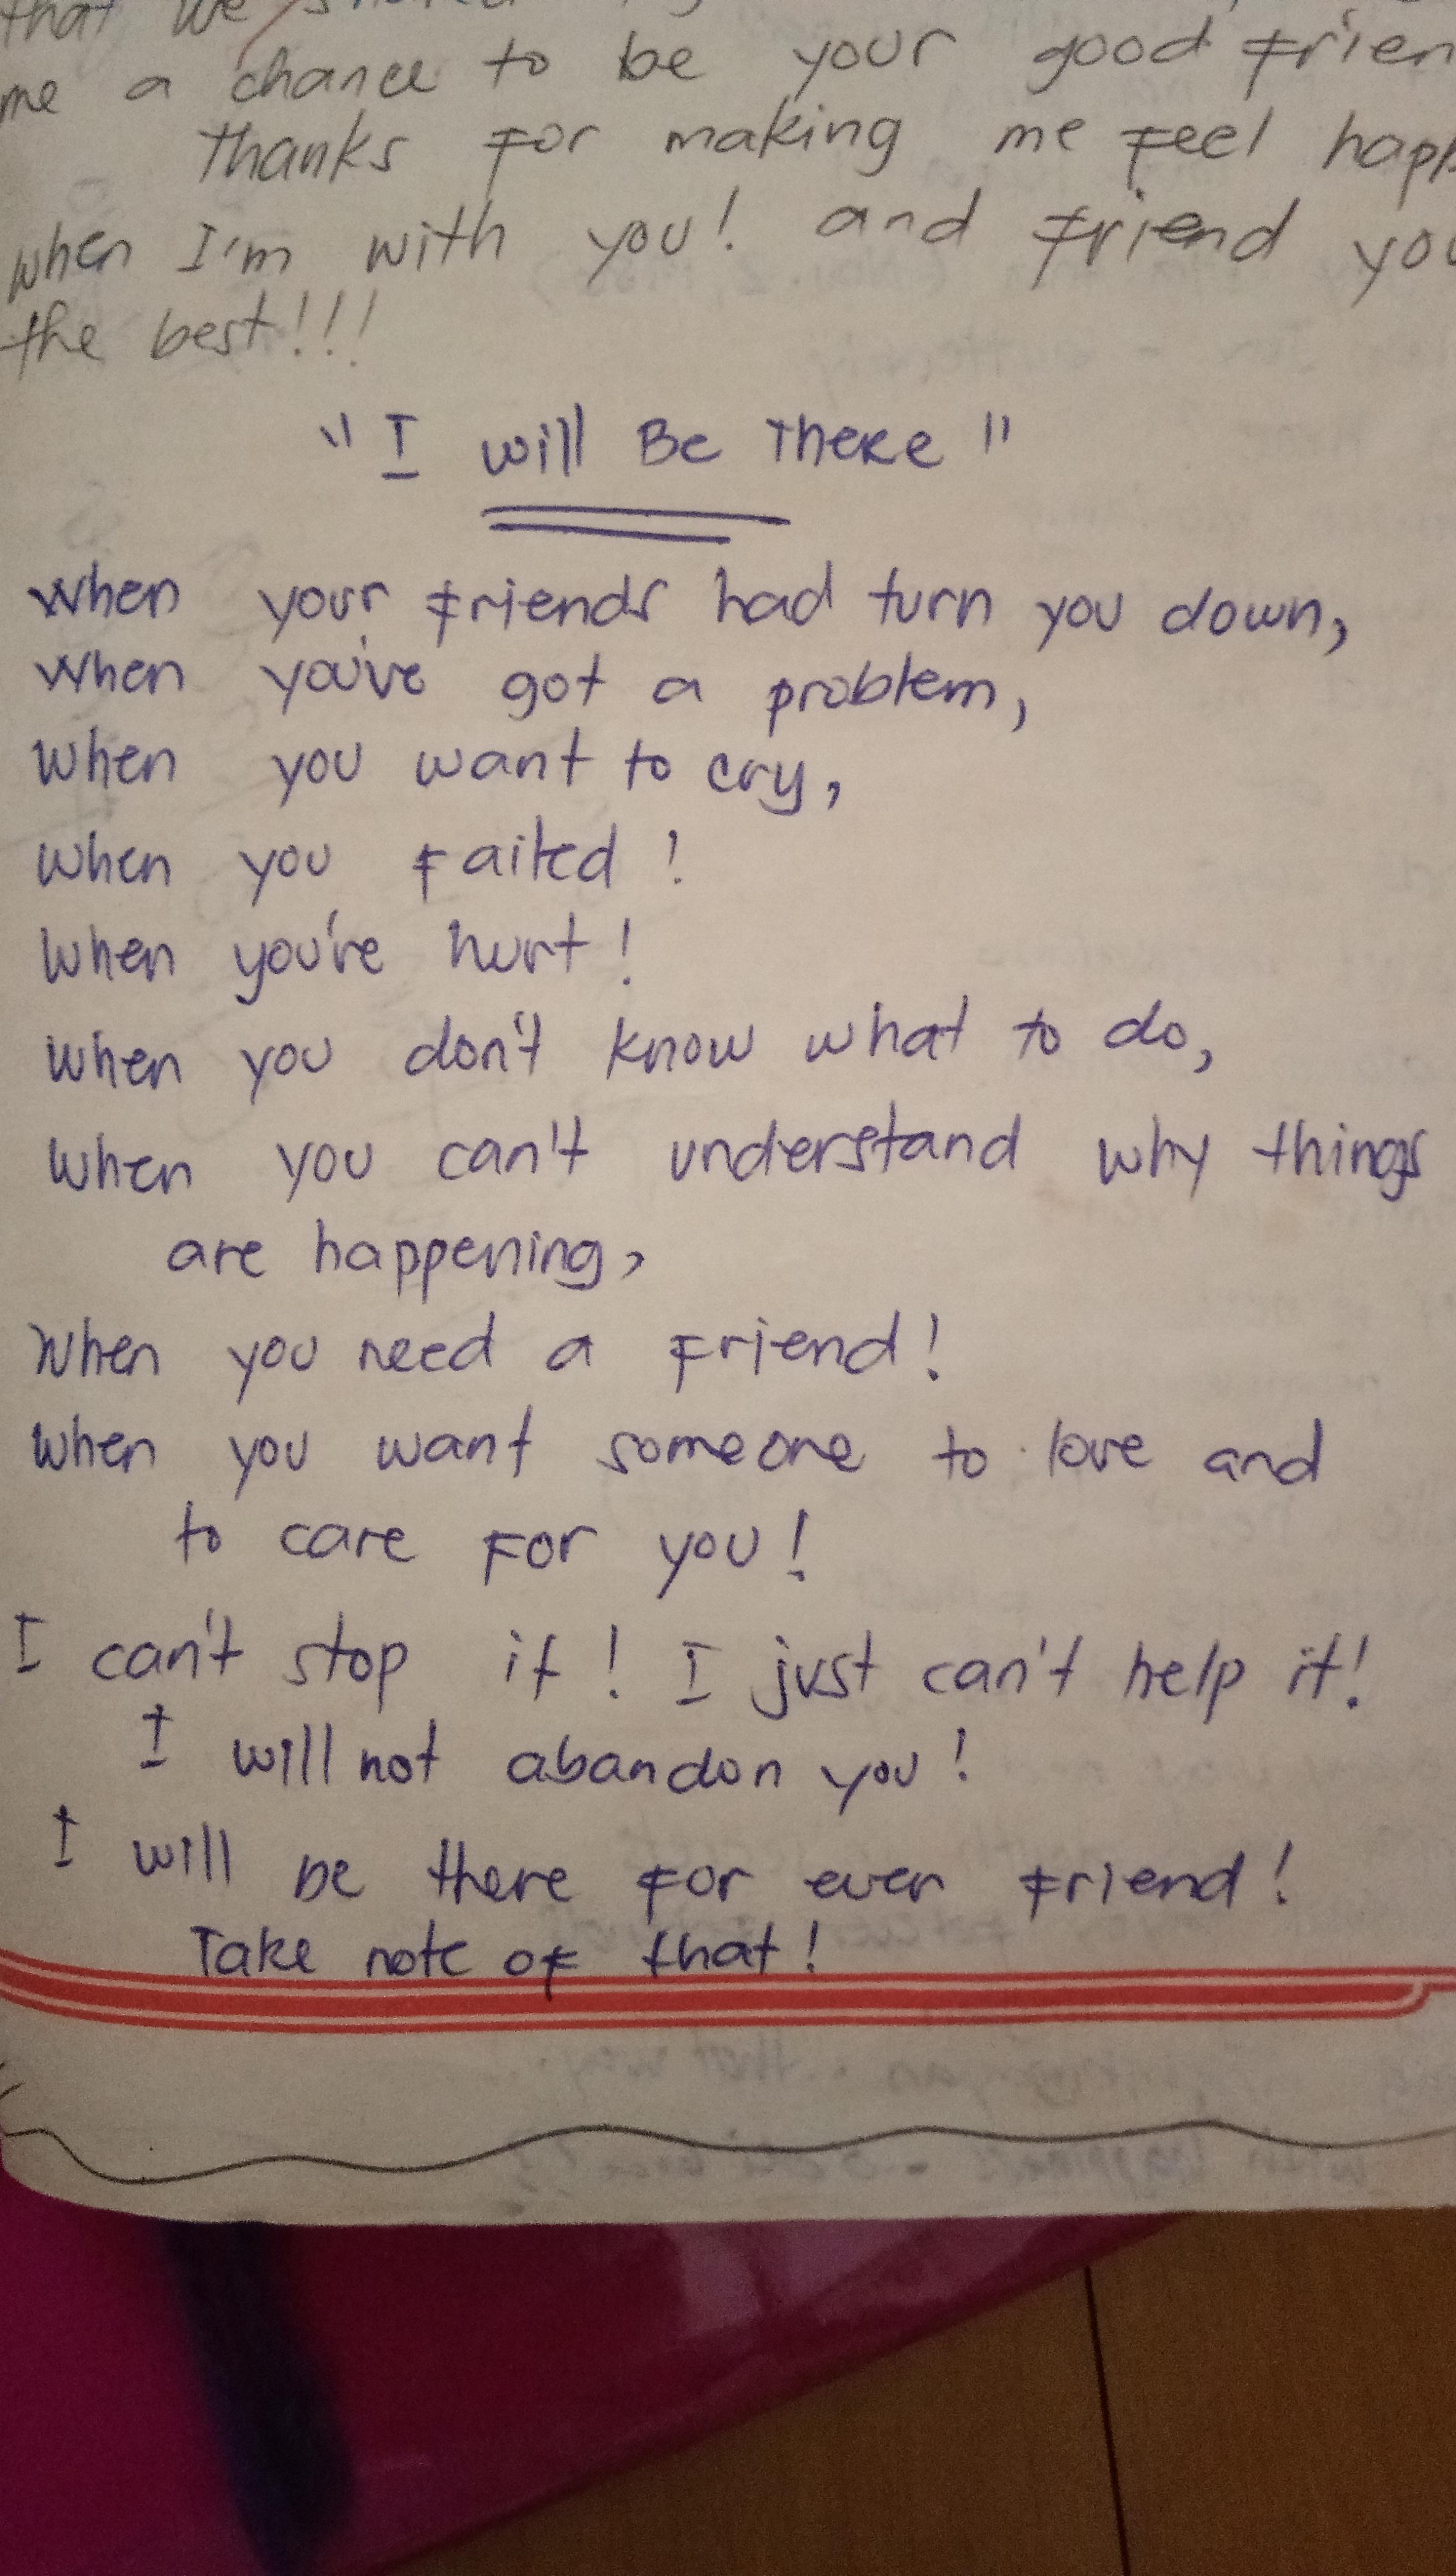 that we
me a chance to be your good frien
thanks for making me feel happ
when I'm with you! and friend you
the best!!!
"I will Be There"
When your friends had turn you down,
When you've got a problem,
When you want to cry,
When you failed!
When you're hurt!
When you don't know what to do,
When you can't understand why things
are happening,
When you need a friend!
When you want someone to love and
to care for you!
I can't stop it! I just can't help it!
I will not abandon you!
I will be there for ever friend!
Take note of that!